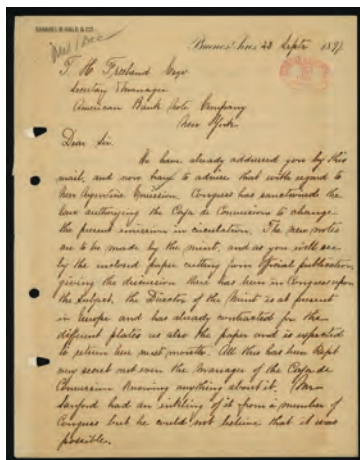 SAMUEL B. HALE & CO.
Buenos Aires 23 Septr 1897
T. H. Freeland Esqr
Secretary & Manager
American Bank Note Company
New York
Dear Sir.
We have already addressed you by this
mail, and now to advise that with regard to
New Argentine Emission, Congress has sanctioned the
law authorizing the Caja de Conversion to change
the present emission in circulation. The new notes
are to be made by the mint, and as you will see
by the enclosed paper cutting from official publication,
giving the discussion there has been in Congress upon
the subject, the Director of the Mint is at present
in Europe and has already contracted for the
different plates as also the paper and is expected
to return here next month. All this has been kept
very secret not even the Manager of the Caja de
Conversion knowing anything about it. Mr
Sanford had an inkling of it from a member of
Congress but he could not believe that it was
possible.